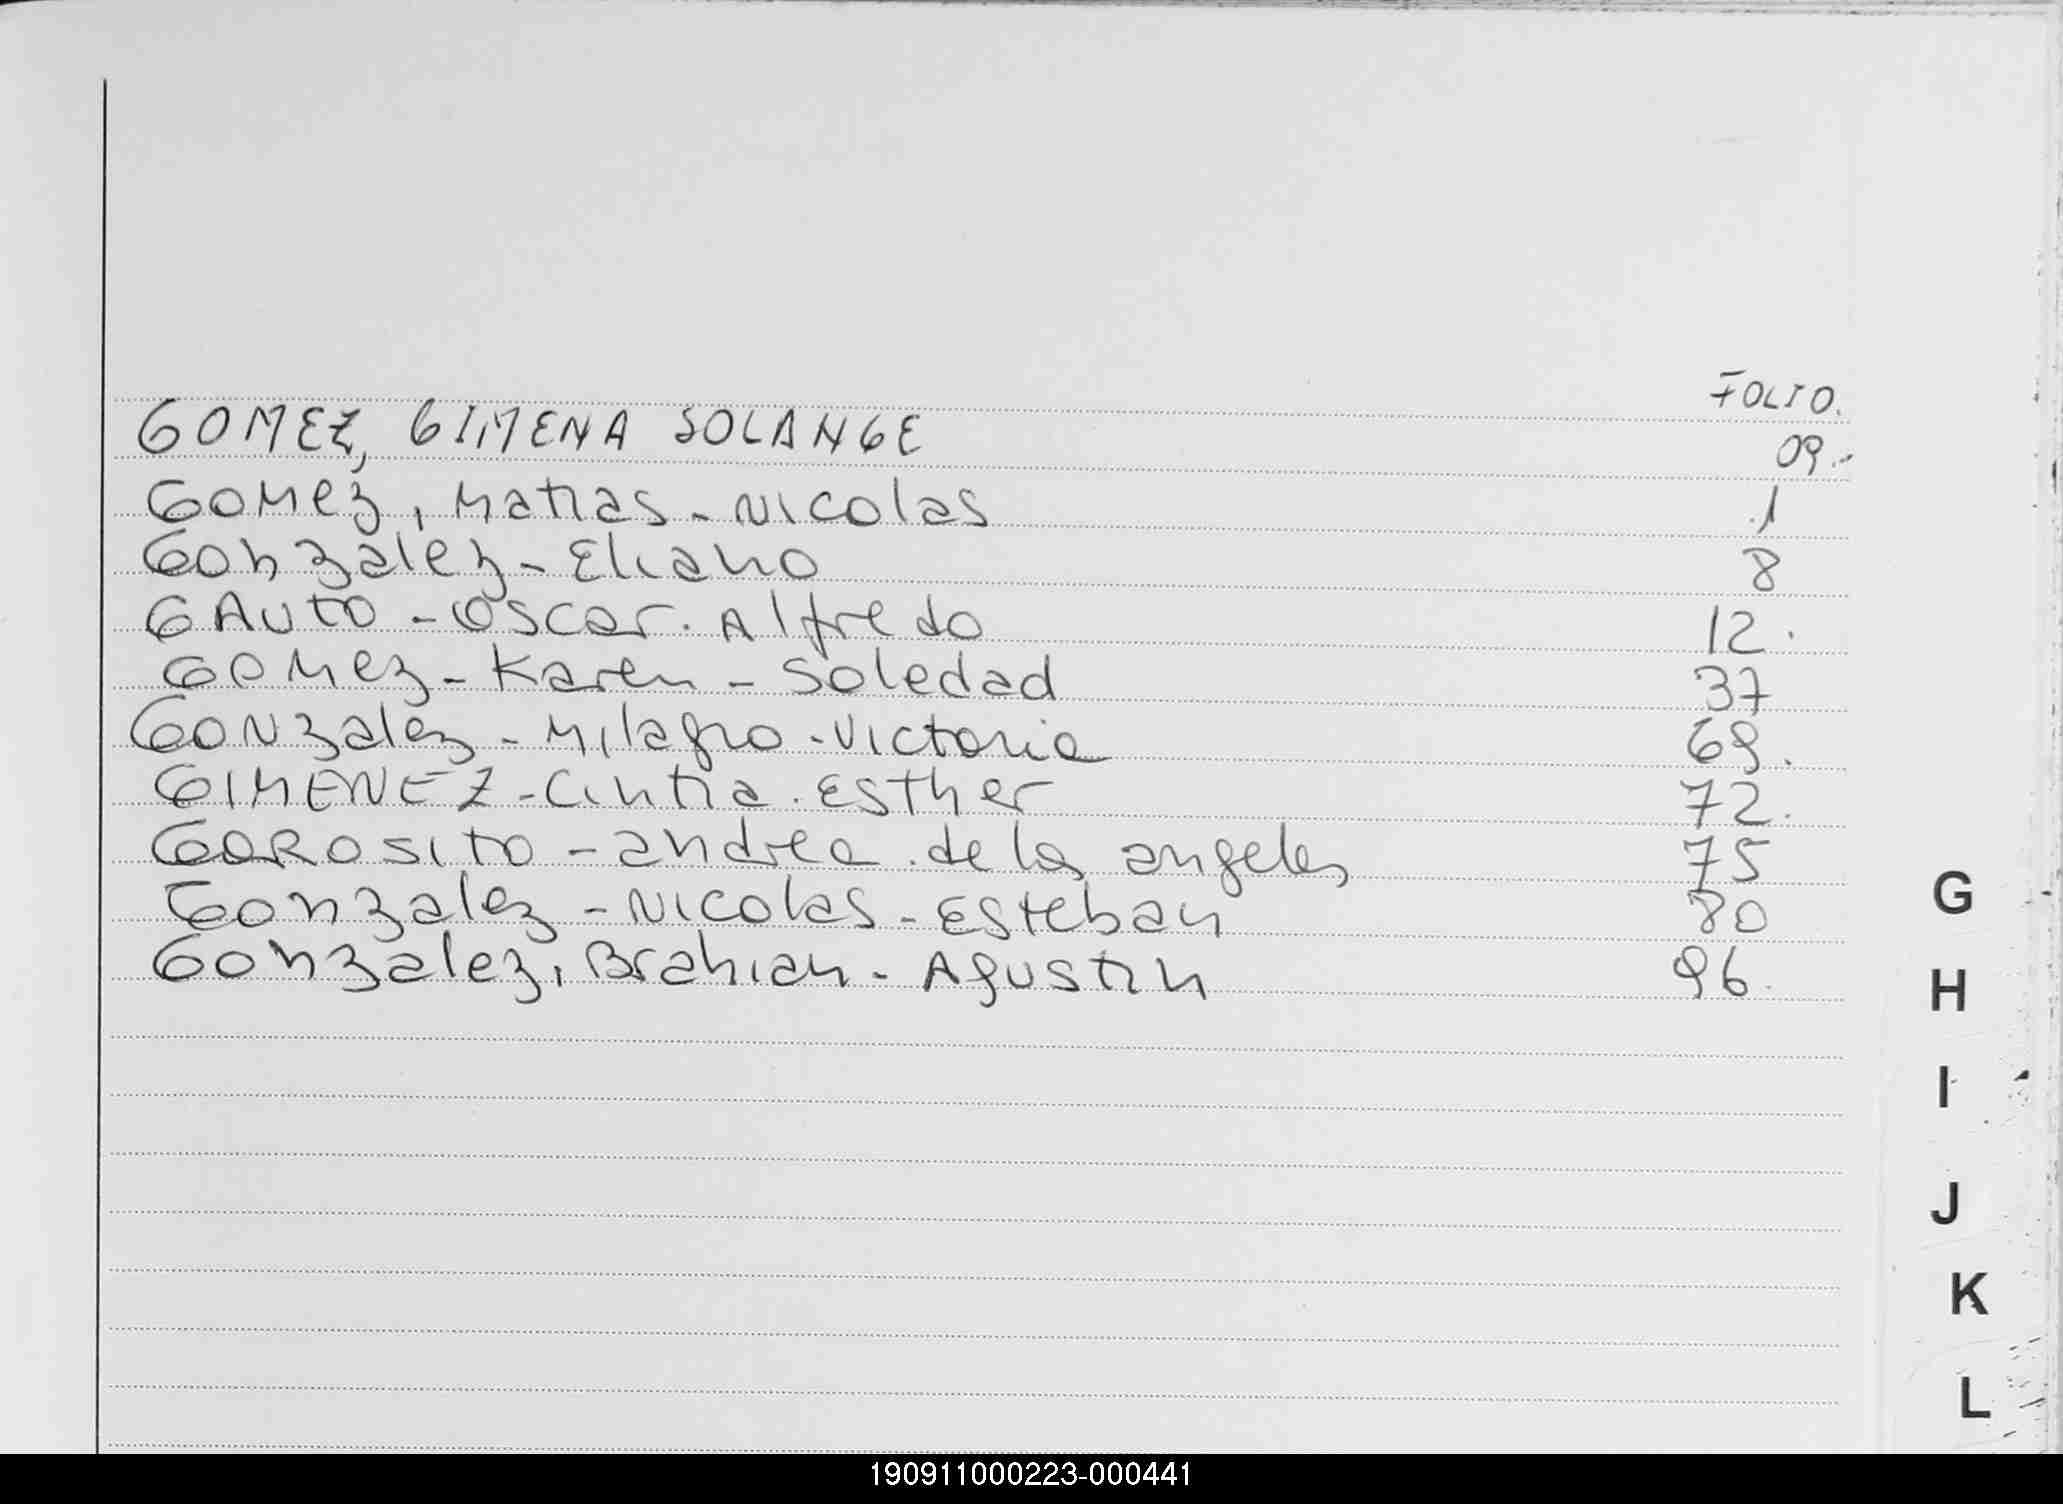 FOLIO.
GOMEZ, GIMENA SOLANGE 09.-
GOMez, Matias - Nicolas 1
Gonzalez - Eliano 8
GAUTO - Oscar. Alfredo 12.
GOMez - Karen - Soledad 37
GONzalez - Milagro - Victoria 69.
GIMENEZ - Cintia. Esther 72.
GOROSITO - andrea. de los angeles 75
Gonzalez - Nicolas - Esteban 80
Gonzalez, Brahian - Agustin 96.
G
H
I
J
K
L
190911000223-000441